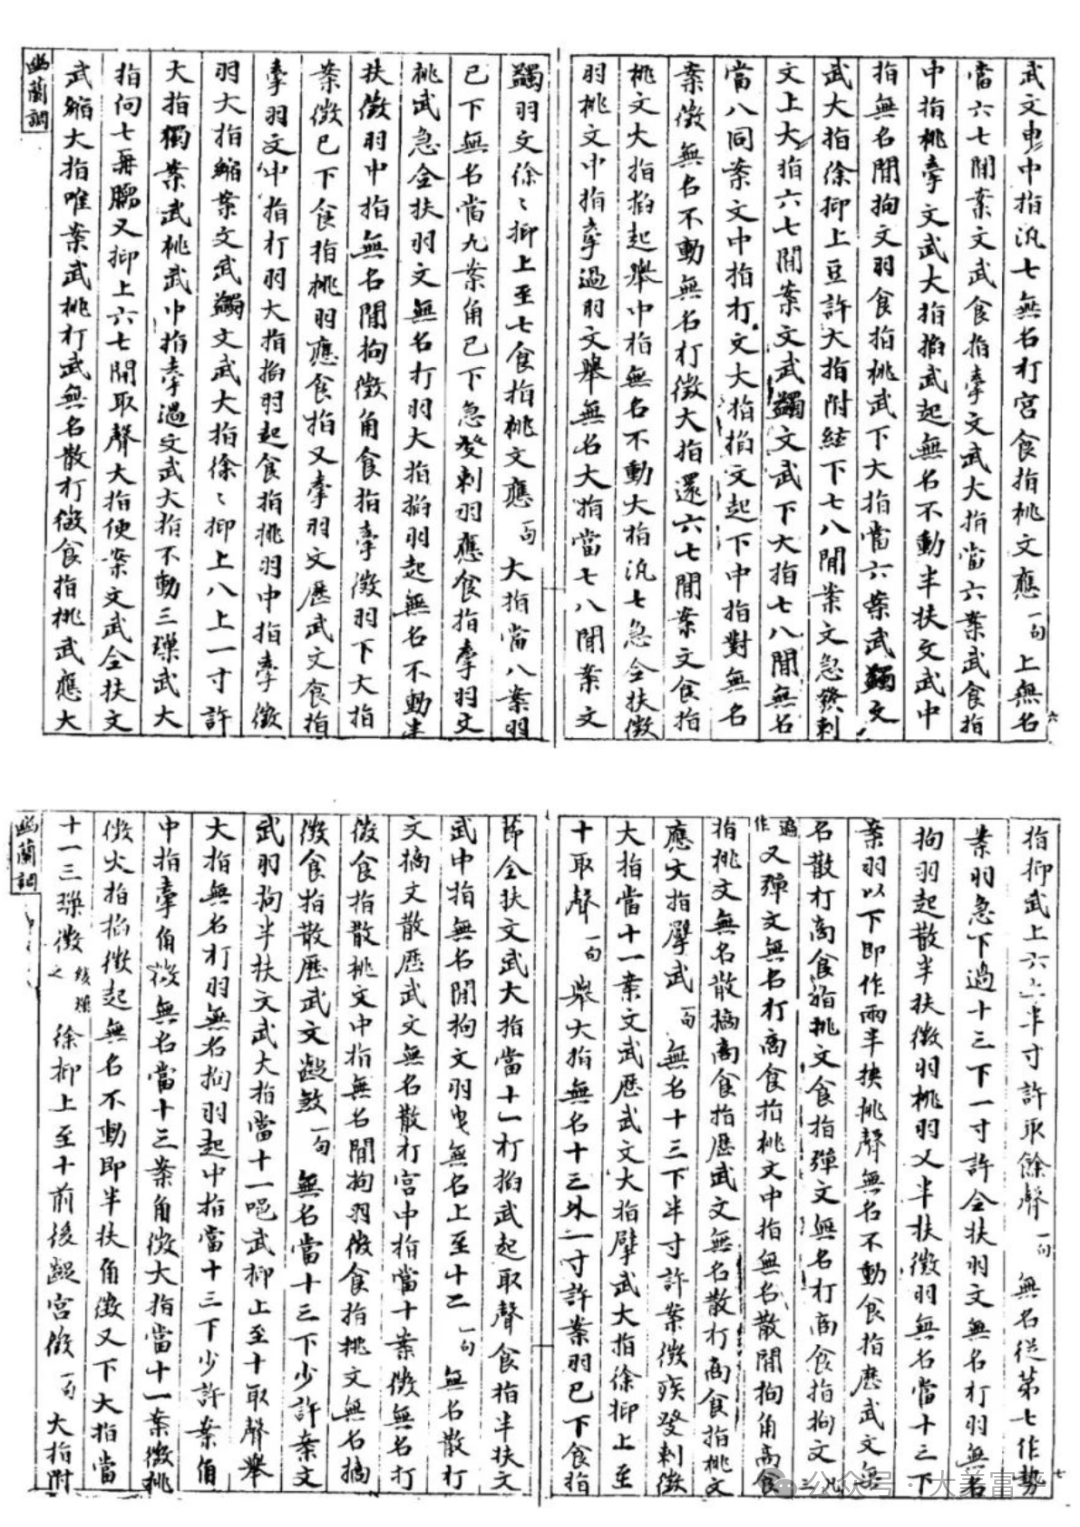 武文曳中指汎七無名打宮食指挑文應一句上無名
當六七間案文武食指牽文武大指當六案武食指
中指挑牽文武大指掐武起無名不動半扶文武中
指無名間拘文羽食指挑武下大指當六案武蠲文
武大指徐抑上豆許大指附絃下七八間案文急發剌
文上大指六七間案文武蠲文武下大指七八間無名
當八同案文中指打文大指掐文起下中指對無名
案徵無名不動無名打徵大指還六七間案文食指
挑文大指掐起舉中指無名不動大指汎七急全扶徵
羽挑文中指牽過羽文舉無名大指當七八間案文
六
蠲羽文徐〻抑上至七食指挑文應一句大指當八案羽
已下無名當九案角已下急發剌羽應食指牽羽文
挑武急全扶羽文無名打羽大指掐羽起無名不動半
扶徵羽中指無名間拘徵角食指牽徵羽下大指
案徵已下食指挑羽應食指又牽羽文歷武文食指
牽羽文中指打羽大指掐羽起食指挑羽中指牽徵
羽大指縮案文武蠲文武大指徐〻抑上八上一寸許
大指獨案武挑武中指牽過文武大指不動三瑮武大
指向七再
又抑上六七間取聲大指便案文武全扶文
武縮大指唯案武挑打武無名散打徵食指挑武應大
幽蘭調
指抑武上六六半寸許取餘聲一句無名從第七作勢
案羽急下過十三下一寸許全扶羽文無名打羽無名
拘羽起散半扶徵羽挑羽又半扶徵羽無名當十三下
案羽以下即作兩半挾挑聲無名不動食指歷武文無
名散打商食指挑文食指彈文無名打商食指拘文
作
又彈文無名打商食指挑文中指無名散間拘角商食
指挑文無名散擿商食指歷武文無名散打商食指挑文
應大指擘武一句無名十三下半寸許案徵疾發剌徵
大指當十一案文武歷武文大指擘武大指徐抑上至
十取聲一句舉大指無名十三外一寸許案羽已下食指
七
節全扶文武大指當十一打掐武起取聲食指半扶文
武中指無名間拘文羽曳無名上至十二一句無名散打
文擿文散歷武文無名散打宮中指當十案徵無名打
徵食指散挑文中指無名間拘羽徵食指挑文無名擿
徵食指散歷武文齪㪇一句無名當十三下少許案文
武羽拘半扶文武大指當十一唲武抑上至十取聲舉
大指無名打羽無名拘羽起中指當十三下少許案角
中指牽角徵無名當十三案角徵大指當十一案徵挑
徵大指掐徵起無名不動即半扶角徵又下大指當
十一三瑮徵緩瑮之徐抑上至十前後齪宮徵一句大指附
幽蘭調
公众号·大美富平